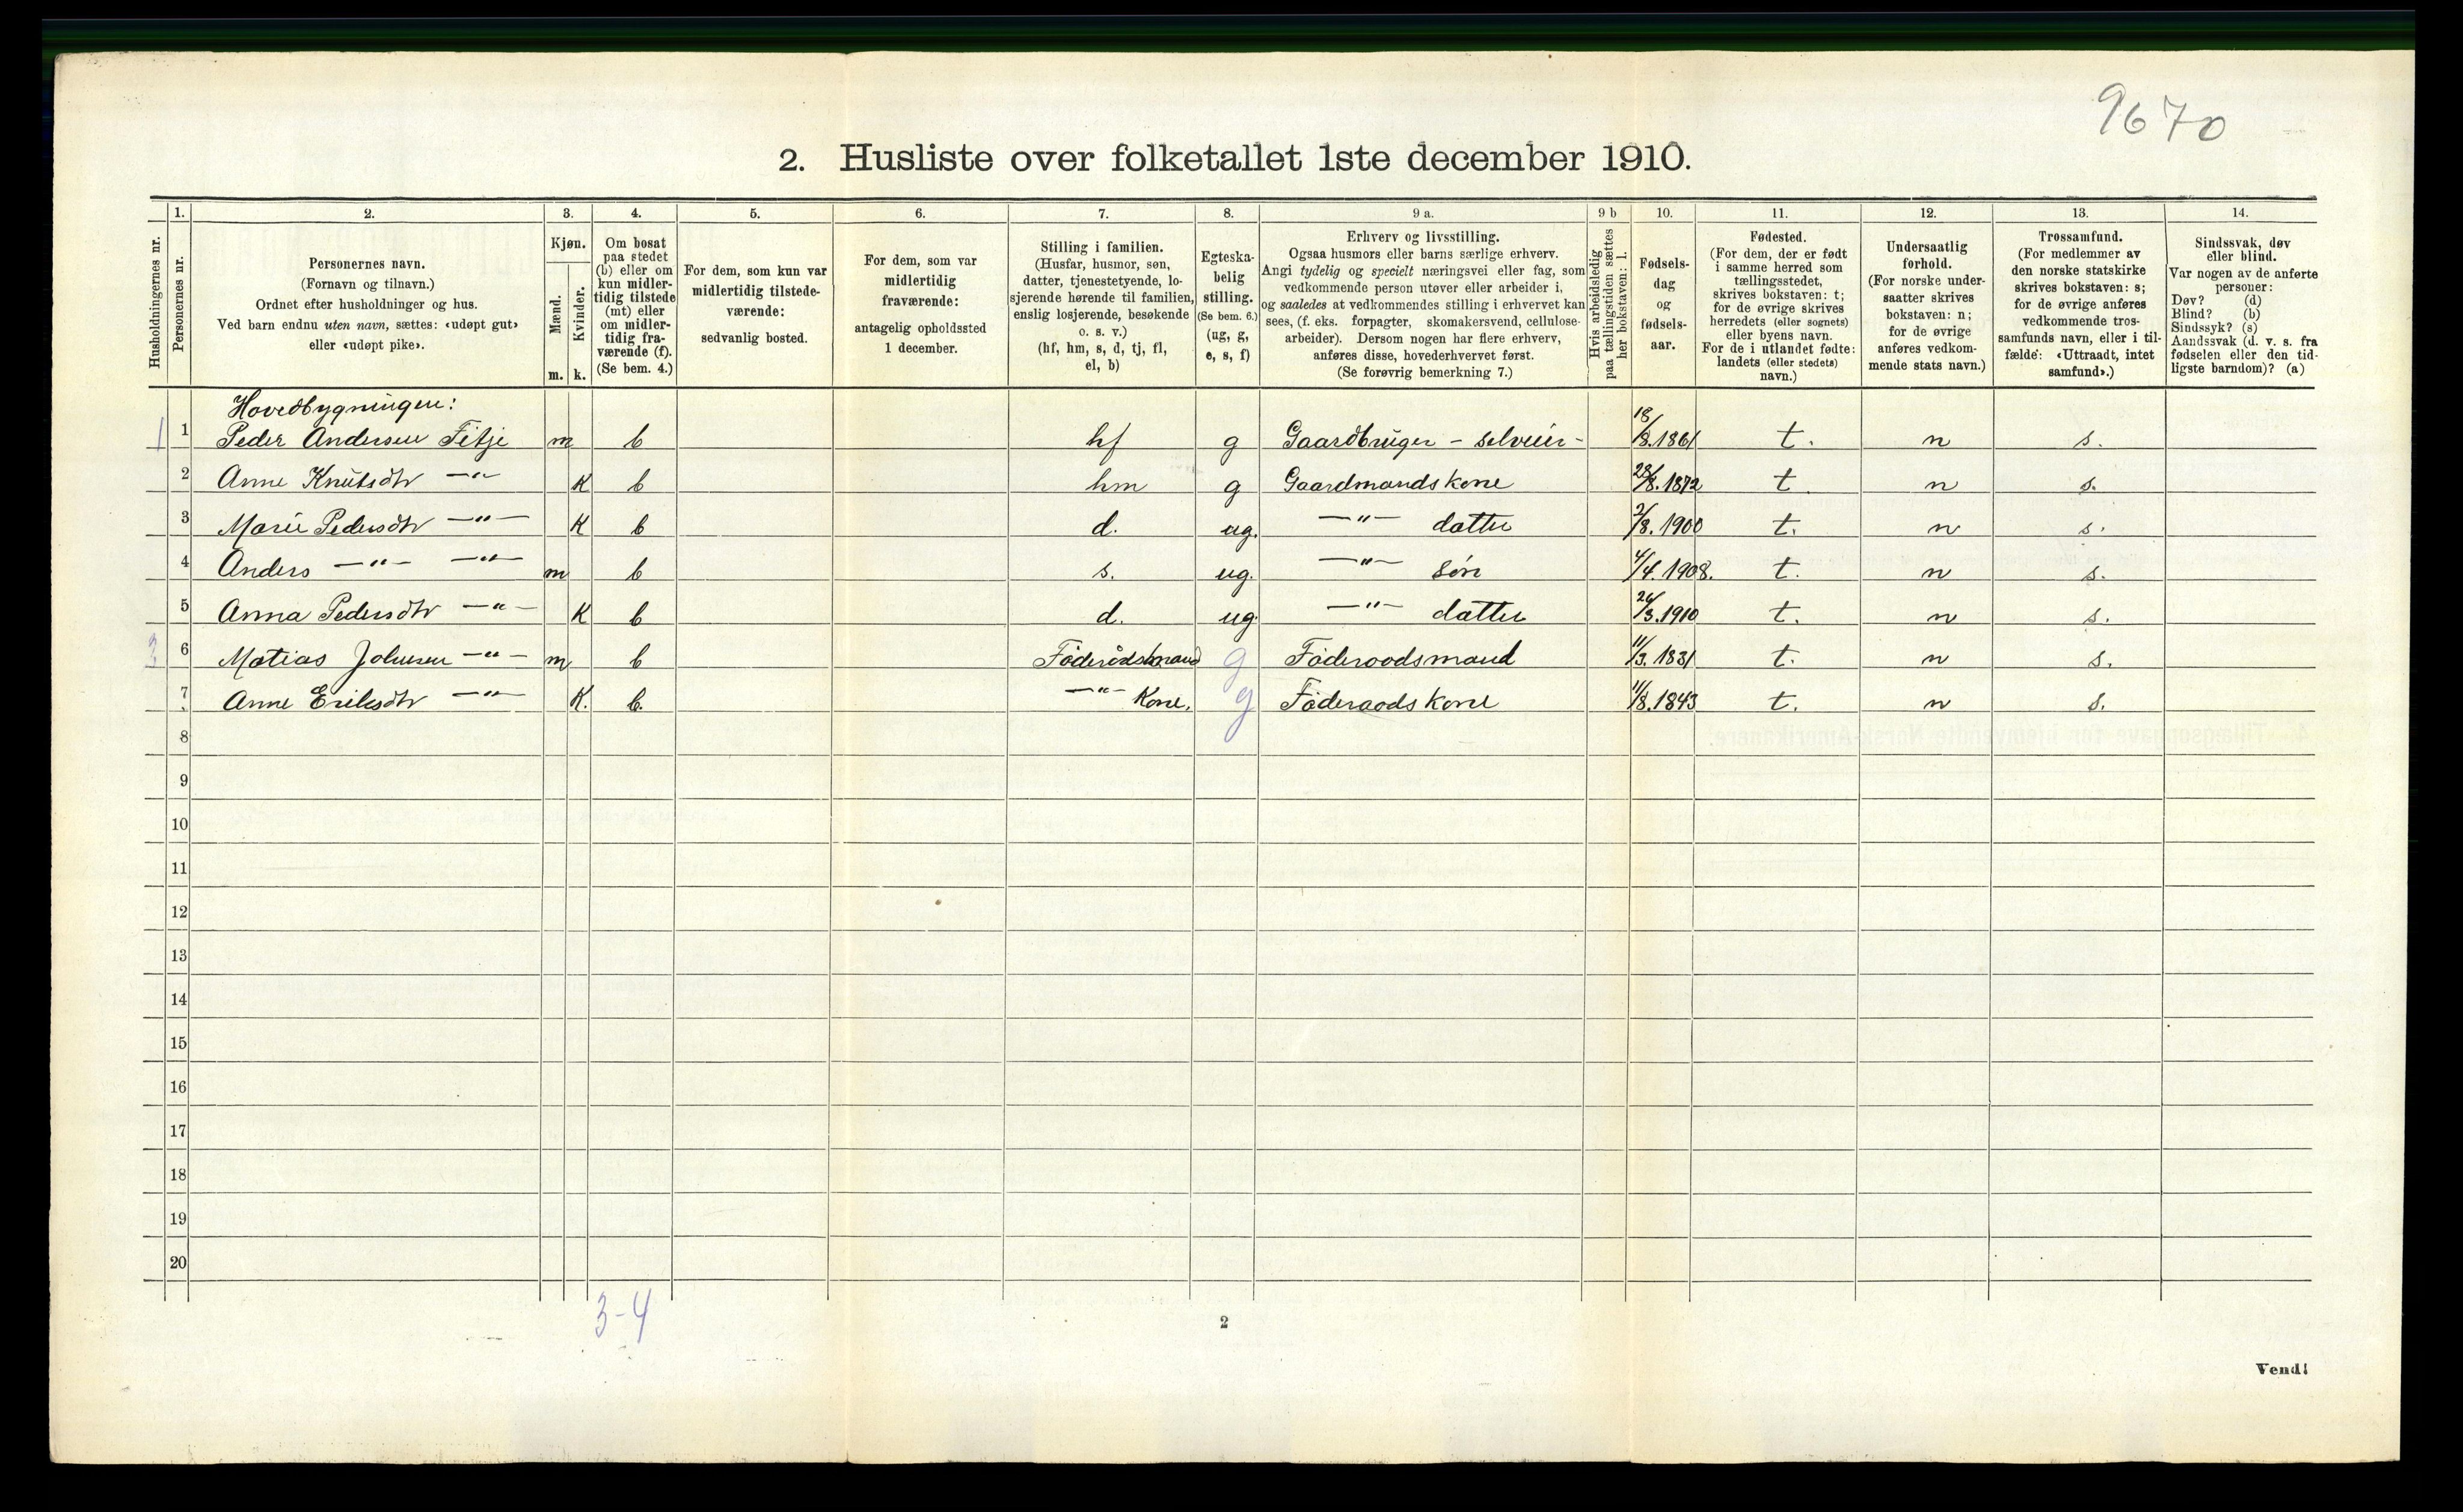 9670
2. Husliste over folketallet 1ste december 1910.
Husholdningernes nr.
1. Personernes nr.
2. Personernes navn.
(Fornavn og tilnavn.)
Ordnet efter husholdninger og hus.
Ved barn endnu uten navn, sættes: «udøpt gut»
eller «udøpt pike».
3. Kjøn.
Mænd. Kvinder.
m. k.
4. Om bosat
paa stedet
(b) eller om
kun midler-
tidig tilstede
(mt) eller
om midler-
tidig fra-
værende (f).
(Se bem. 4.)
5. For dem, som kun var
midlertidig tilstede-
værende:
sedvanlig bosted.
6. For dem, som var
midlertidig
fraværende:
antagelig opholdssted
1 december.
7. Stilling i familien.
(Husfar, husmor, søn,
datter, tjenestetyende, lo-
sjerende hørende til familien,
enslig losjerende, besøkende
o. s. v.)
(hf, hm, s, d, tj, fl,
el, b)
8. Egteska-
belig
stilling.
(Se bem. 6.)
(ug, g,
e, s, f)
9 a. Erhverv og livsstilling.
Ogsaa husmors eller barns særlige erhverv.
Angi tydelig og specielt næringsvei eller fag, som
vedkommende person utøver eller arbeider i,
og saaledes at vedkommendes stilling i erhvervet kan
sees, (f. eks. forpagter, skomakersvend, cellulose-
arbeider). Dersom nogen har flere erhverv,
anføres disse, hovederhvervet først.
(Se forøvrig bemerkning 7.)
9 b Hvis arbeidsledig
paa tællingstiden sættes
her bokstaven: l.
10. Fødsels-
dag
og
fødsels-
aar.
11. Fødested.
(For dem, der er født
i samme herred som
tællingsstedet,
skrives bokstaven: t;
for de øvrige skrives
herredets (eller sognets)
eller byens navn.
For de i utlandet fødte:
landets (eller stedets)
navn.)
12. Undersaatlig
forhold.
(For norske under-
saatter skrives
bokstaven: n;
for de øvrige
anføres vedkom-
mende stats navn.)
13. Trossamfund.
(For medlemmer av
den norske statskirke
skrives bokstaven: s;
for de øvrige anføres
vedkommende tros-
samfunds navn, eller i til-
fælde: «Uttraadt, intet
samfund».)
14. Sindssvak, døv
eller blind.
Var nogen av de anførte
personer:
Døv? (d)
Blind? (b)
Sindssyk? (s)
Aandssvak (d. v. s. fra
fødselen eller den tid-
ligste barndom)? (a)
Hovedbygningen:
1 1 Peder Andersen Fitje m b hf g Gaardbruger - selveier - 18/8.1861 t. n s.
2 Anne Knutsdtr —"— K b hm g Gaardmandskone 28/8.1872 t. n s.
3 Marie Pedersdtr —"— K b d. ug. —"— datter 2/8.1900 t. n s.
4 Anders —"— —"— m b s. ug. —"— søn 4/4.1908. t. n s.
5 Anna Pedersdtr —"— K b d. ug. —"— datter 26/3.1910 t. n s.
6 Matias Johnsen —"— m b Føderådsmand g Føderoodsmand 11/3.1831 t. n s.
7 Anne Eriksdtr —"— K. b. —"— Kone. g Føderaadskone 11/8.1843 t. n s.
8
9
10
11
12
13
14
15
16
17
18
19
20
3-4
2
Vend!